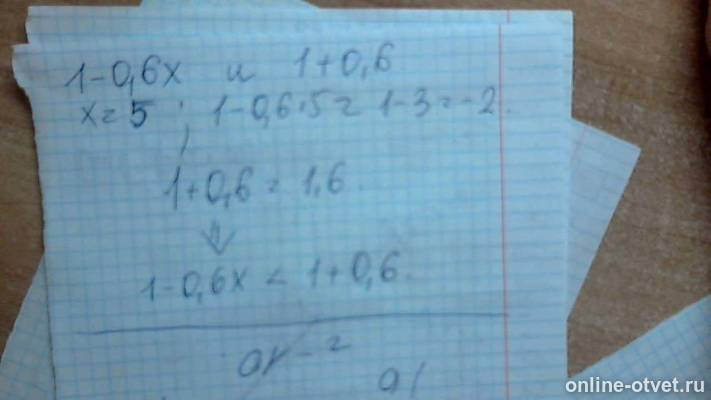 1-0,6x и 1+0,6
x=5; 1-0,6·5=1-3=-2.
1+0,6=1,6.
⇓
1-0,6x < 1+0,6.
online-otvet.ru